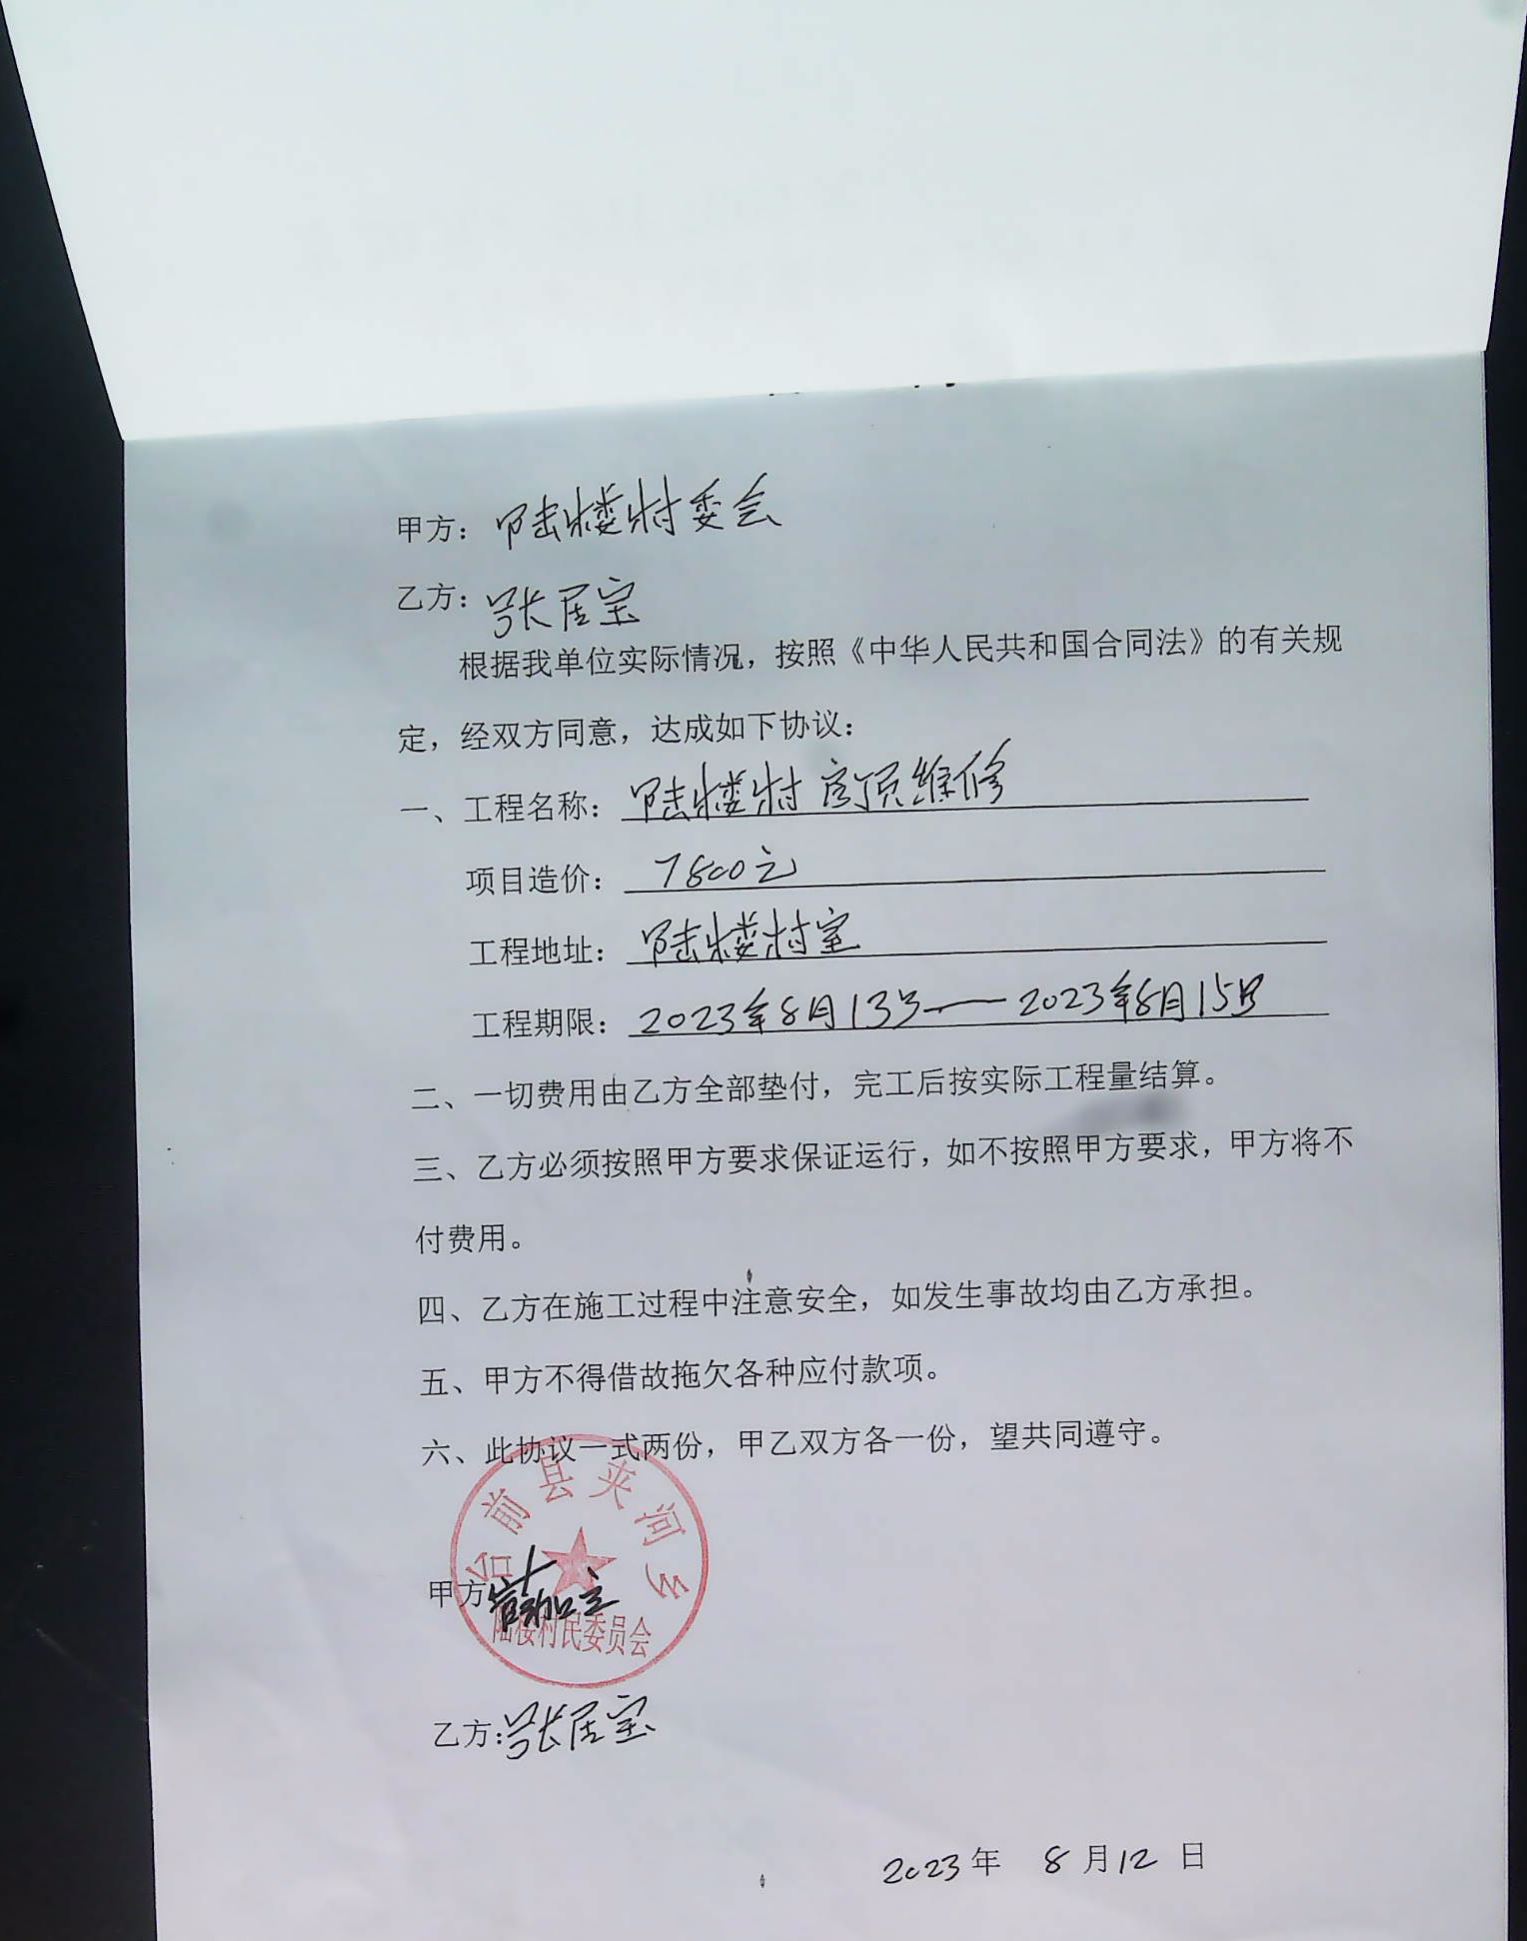 甲方：陆楼村委会
乙方：张居宝
根据我单位实际情况，按照《中华人民共和国合同法》的有关规
定，经双方同意，达成如下协议：
一、工程名称：陆楼村房顶维修
项目造价：7800元
工程地址：陆楼村室
工程期限：2023年8月13号——2023年8月15号
二、一切费用由乙方全部垫付，完工后按实际工程量结算。
三、乙方必须按照甲方要求保证运行，如不按照甲方要求，甲方将不
付费用。
四、乙方在施工过程中注意安全，如发生事故均由乙方承担。
五、甲方不得借故拖欠各种应付款项。
六、此协议一式两份，甲乙双方各一份，望共同遵守。
台前县夹河乡
甲方
陆楼村民委员会
乙方：张居宝
2023年 8月12日